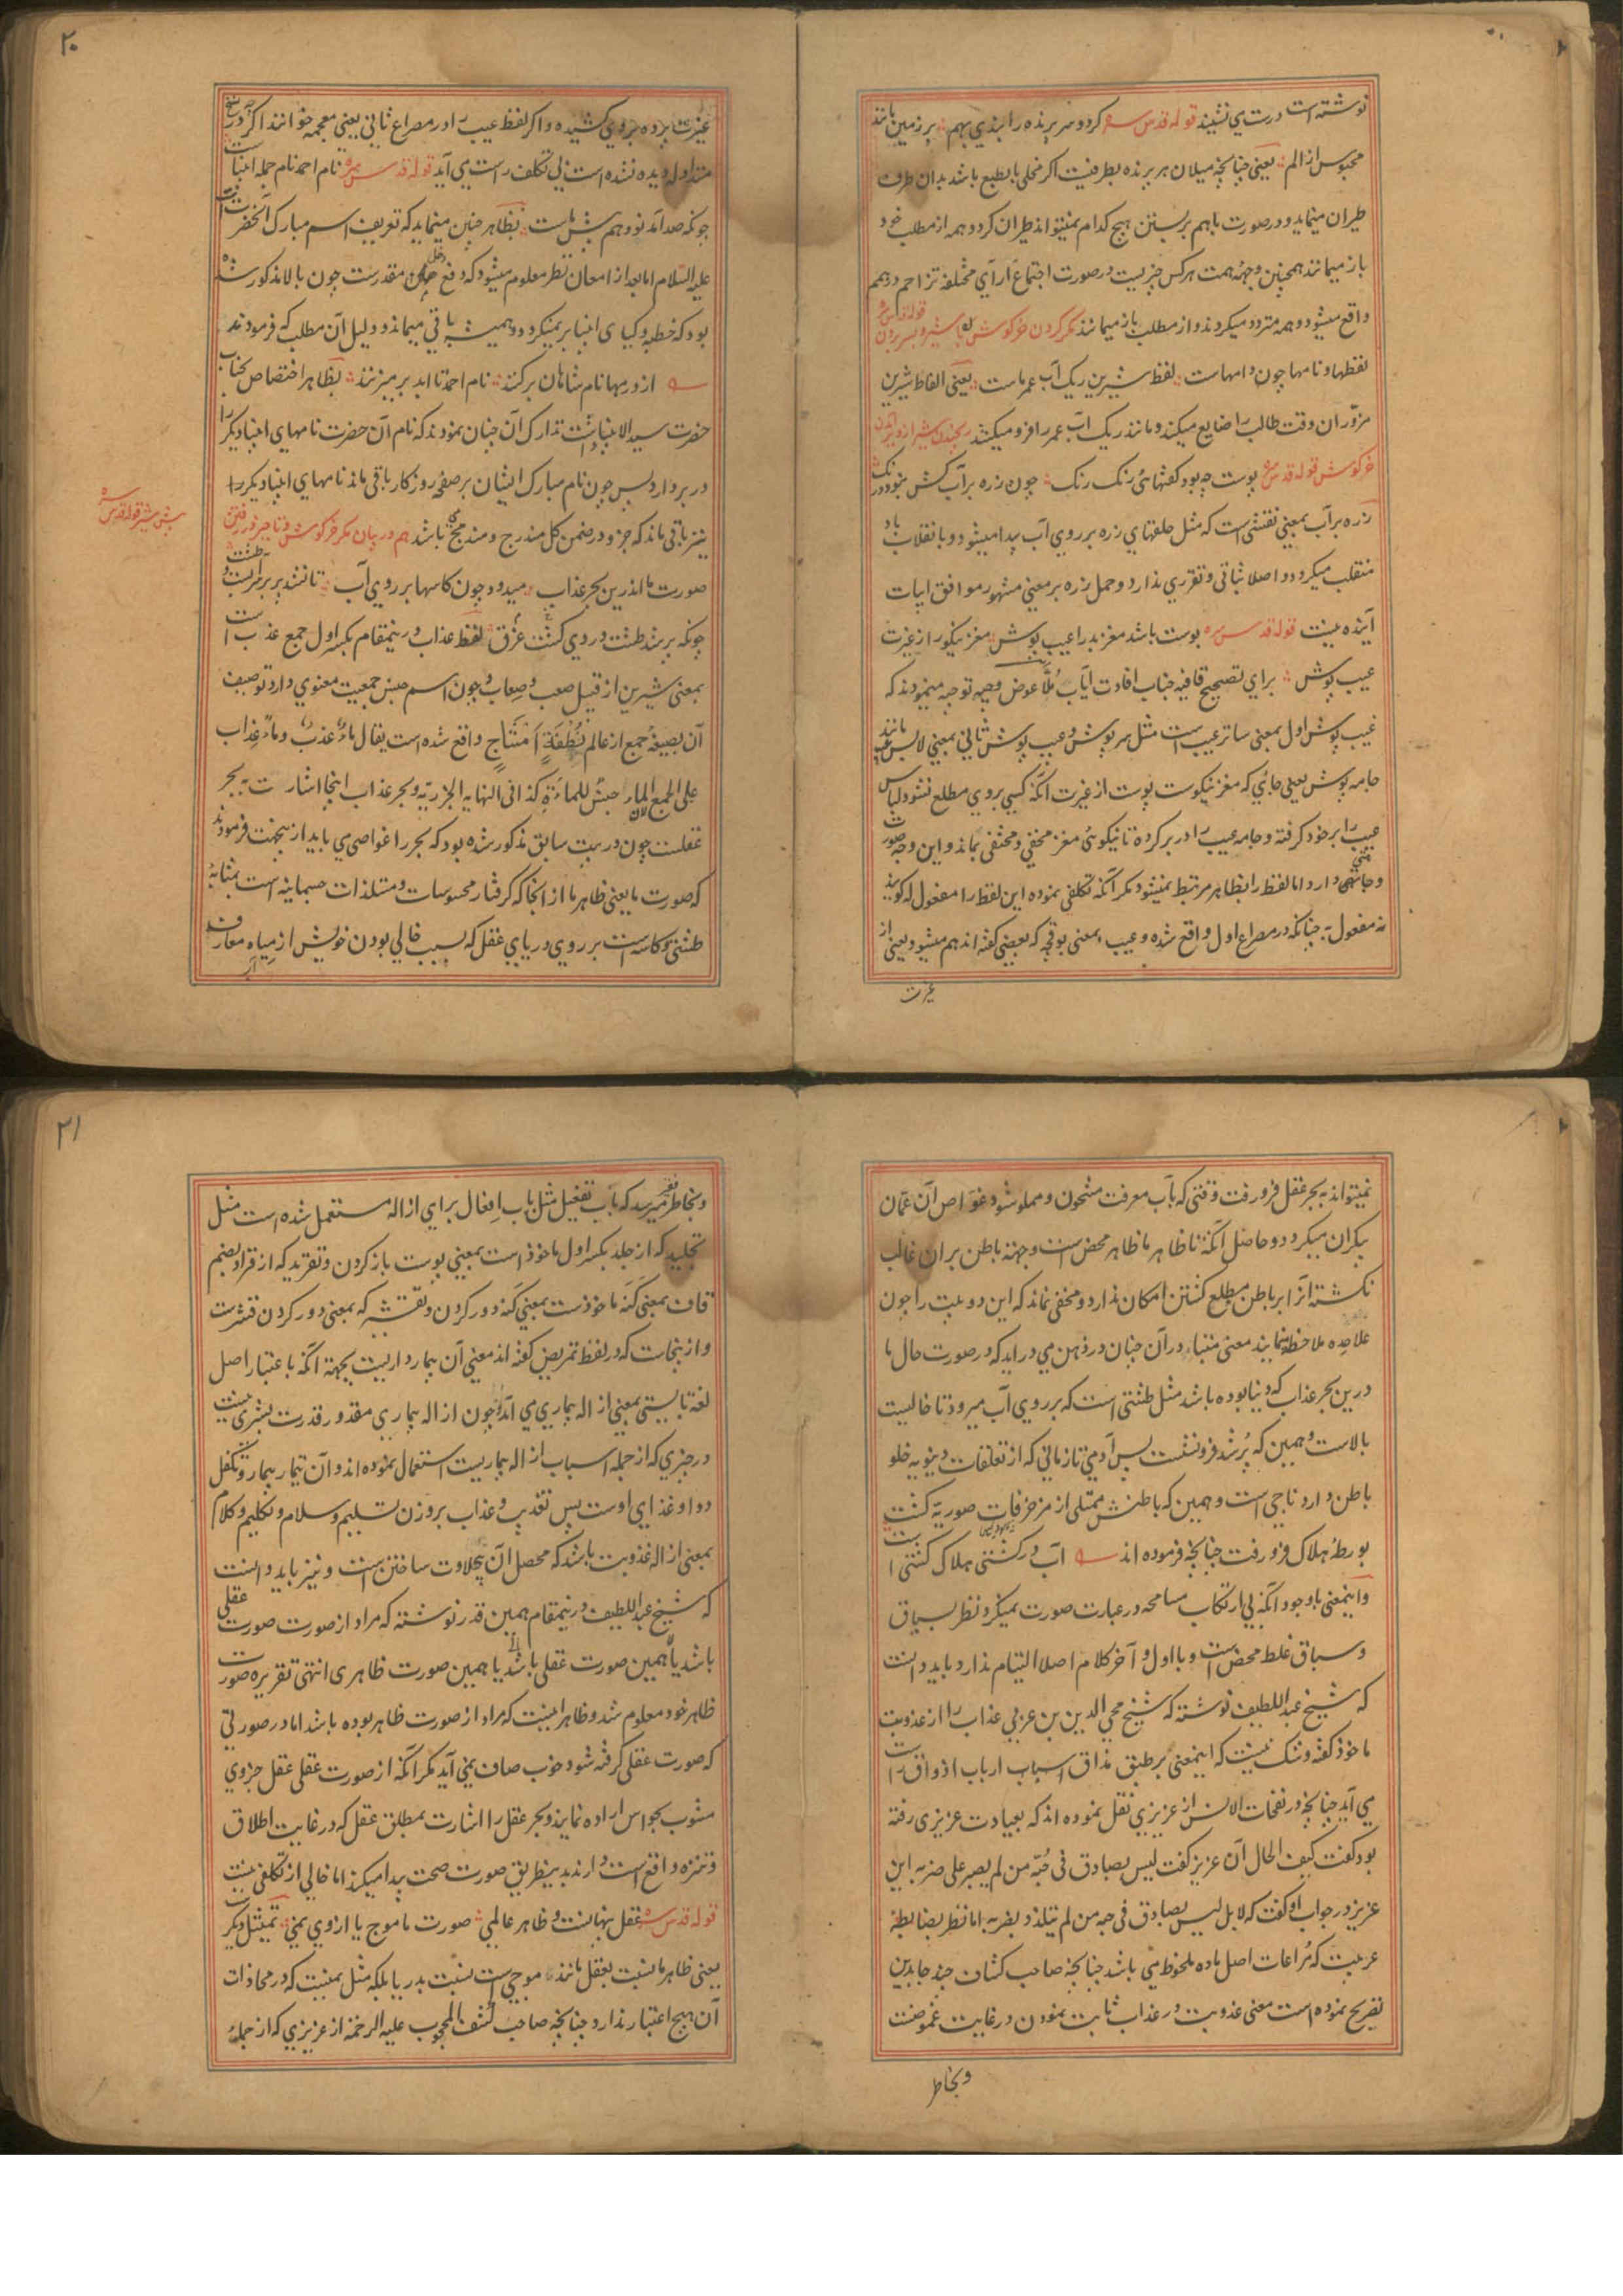 نوشته است درست می نشیند قوله قدس سره کرد و مرغ پرنده را بندی بهم برزمین مانند
محبوس از الم یعنی چنانچه میلان هر پرنده بطرفیست اگر مخلی بالطبع باشد بدان طرف
طیران مینماید و درصورت باهم بربستن هیچ کدام نمیتواند طیران کرد و همه از مطلب خود
باز میمانند همچنین وجهه همت هر کس چیزیست در صورت اجتماع آرای مختلفه تزاحم درهم
واقع میشود و همه متردد میگردند و از مطلب باز میمانند مکر کردن خرگوش با شیر و بسر بردن قوله قدس سره
لفظها و نامها چون دامهاست لفظ شیرین ریک آب عمر ماست یعنی الفاظ شیرین
مزوران وقت طالب را ضایع میکند و مانند ریک آب عمر را فرو میکشد
خرگوش قوله قدس سره پوست چه بود گفتهای رنگ رنگ چون زره بر آب کش نبود درنگ
زره بر آب بمعنی نقشی است که مثل حلقهای زره بر روی آب پیدا میشود و بانقلاب باد
منقلب میگردد و اصلا ثباتی و تقرری ندارد و حمل زره بر معنی مشهور موافق ابیات
آینده نیست قوله قدس سره پوست باشد مغز بد را عیب پوش مغز نیکو را ز غیرت
عیب پوش برای تصحیح قافیه جناب افادت مآب ملا عوض وجیه توجیه مینمودند که
عیب پوش اول بمعنی ساتر عیب است مثل سرپوش و عیب پوش ثانی بمعنی لابس عیب مانند
جامه پوش یعنی جائی که مغز نیکوست پوست از غیرت آنکه کسی بروی مطلع نشود لباس
عیب را برخود گرفته و جامه عیب را در بر کرده تا نیکوئی مغز مخفی و مختفی بماند و این وجه صورت
و جاشنی دارد اما لفظ را بظاهر مرتبط نمیشود مگر آنکه تکلفی نموده این لفظ را مفعول له گویند
نه مفعول به چنانکه در مصراع اول واقع شده و عیب بمعنی بوقچه که بعضی گفته اند هم میشود یعنی از
غیرت
۲۰
غیرت پرده بروی کشیده و اگر لفظ عیب را در مصراع ثانی یعنی معجمه خوانند اگرچه در نسخ
متداوله دیده نشده است بی تکلف راست می آید قوله قدس سره نام احمد نام جمله انبیاست
چونکه صد آمد نود هم پیش ماست بظاهر چنین مینماید که تعریف اسم مبارک آنحضرت است
علیه السلام اما بعد از امعان نظر معلوم میشود که دفع دخل مقدرست چون بالا مذکور شده
بود که خطبه و کیای انبیا بر نمیگردد و همیشه باقی میماند و دلیل آن مطلب که فرمودند
از درمها نام شاهان برکنند نام احمد تا ابد برمیزنند بظاهر اختصاص بجناب
حضرت سید الانبیا داشت تدارک آن چنان نمودند که نام آن حضرت نامهای انبیا دیگر را
در بر دارد پس چون نام مبارک ایشان برصفحه روزگار باقی ماند نامهای انبیا دیگر را
نیز باقی ماند که جزو در ضمن کل مندرج و مندمج باشد هم در بیان مکر خرگوش و تاخیر در رفتن
پیش شیر قوله قدس سره
صورت ما اندرین بحر عذاب میدود چون کاسها بر روی آب تا نشد پر بر سر دریاست طشت
چونکه پر شد طشت در وی گشت غرق لفظ عذاب درینمقام بکسر اول جمع عذب است
بمعنی شیرین از قبیل صعب و صعاب و چون اسم جنس جمعیت معنوی دارد توصیف
آن بصیغه جمع از عالم نطفة امشاج واقع شده است یقال ماء عذب و ماء عذاب
علی الجمع لان الماء جنس للماءة کذا فی النهایه الجزریه و بحر عذاب اینجا اشارت به بحر
عقلست چون در بیت سابق مذکور شده بود که بحر را غواصی می باید ازینجهت فرمودند
که صورت ما یعنی ظاهر ما از آنجا که گرفتار محسوسات و مستلذات جسمانیه است بمثابه
طشتی و کاسه است بر روی دریای عقل که بسبب خالی بودن خویش از میاه معارف
نمیتواند به بحر عقل فرو رفت و قتی که بآب معرفت مشحون و مملو شود غواص آن عمان
بیکران میگردد و حاصل آنکه تا ظاهر ما ظاهر محض است و جهته باطن بران غالب
نگشته آنرا بر باطن مطلع گشتن امکان ندارد و مخفی نماند که این دو بیت را چون
علاحده ملاحظه نمایند معنی متبادر آن چنان در ذهن می در اید که در صورت حال ما
درین بحر عذاب که دنیا بوده باشد مثل طشتی است که بر روی آب میرود تا خالیست
بالاست و همین که پر شد فرو نشست پس آدمی تا زمانی که از تعلقات دنیویه خلو
باطن دارد ناجی است و همین که باطنش ممتلی از مزخرفات صوریه گشت
بورطه هلاک فرو رفت چنانچه فرموده اند آب در کشتی هلاک کشتی است
و اینمعنی باوجود آنکه بی ارتکاب مسامحه در عبارت صورت نمیگیرد نظر بسیاق
و سباق غلط محض است و با اول و آخر کلام اصلا التیام ندارد باید دانست
که شیخ عبد اللطیف نوشته که شیخ محی الدین بن عربی عذاب را از عذوبت
ماخوذ گفته و شک نیست که اینمعنی بر طبق مذاق ارباب اذواق راست
می آید چنانچه در نفحات الانس از عزیزی نقل نموده اند که بعیادت عزیزی رفته
بود گفت کیف الحال آن عزیز گفت لیس بصادق فی حبه من لم یصبر علی ضربه این
عزیز در جواب او گفت که لا بل لیس بصادق فی حبه من لم یتلذذ بضربه اما نظر بضابطه
عربیت که مراعات اصل ماده ملحوظ می باشد چنانچه صاحب کشاف چند جا بدین
تصریح نموده است معنی عذوبت در عذاب ثابت نمودن در غایت غموضست
وبخاطر
۲۱
وبخاطر فقیر میرسد که باب تفعیل مثل باب افعال برای ازاله مستعمل شده است مثل
تجلید که از جلد بکسر اول ماخوذ است بمعنی پوست باز کردن و تقرید که از قراد بضم
قاف بمعنی کنه ماخوذست بمعنی کنه دور کردن و تقشیر که بمعنی دور کردن قشرست
و ازینجاست که در لفظ تمریض گفته اند معنی آن بیمار داریست بجهة آنکه باعتبار اصل
لغة بایستی بمعنی ازاله بیماری می آمد و چون ازاله بیماری مقدور قدرت بشری نیست
در چیزی که از جمله اسباب ازاله بیماریست استعمال نموده اند و آن تیمار بیمار و تکفل
دوا و غذای اوست پس تعذیب و عذاب بروزن تسلیم و سلام و تکلیم و کلام
بمعنی ازاله عذوبت باشد که محصل آن بیحلاوت ساختن است و نیز باید دانست
که شیخ عبد اللطیف درینمقام همین قدر نوشته که مراد از صورت صورت عقلی
باشد یا همین صورت ظاهری انتهی تقریره صورت
ظاهر خود معلوم شد و ظاهر اینست که مراد از صورت ظاهر بوده باشد اما در صورتی
که صورت عقلی گرفته شود خوب صاف نمی آید مگر آنکه از صورت عقلی عقل جزوی
مشوب بحواس اراده نمایند و بحر عقل را اشارت بمطلق عقل که در غایت اطلاق
و تنزه واقع است دارند بدینطریق صورت صحت پیدا میکند اما خالی از تکلفی نیست
قوله قدس سره عقل پنهانست و ظاهر عالمی صورت ما موج یا از وی نمی تمثیل دیگر
یعنی ظاهر ما نسبت بعقل مانند موجی است نسبت بدریا بلکه مثل نمیست که در محاذات
آن هیچ اعتبار ندارد چنانچه صاحب کشف المحجوب علیه الرحمه از عزیزی که از جمله